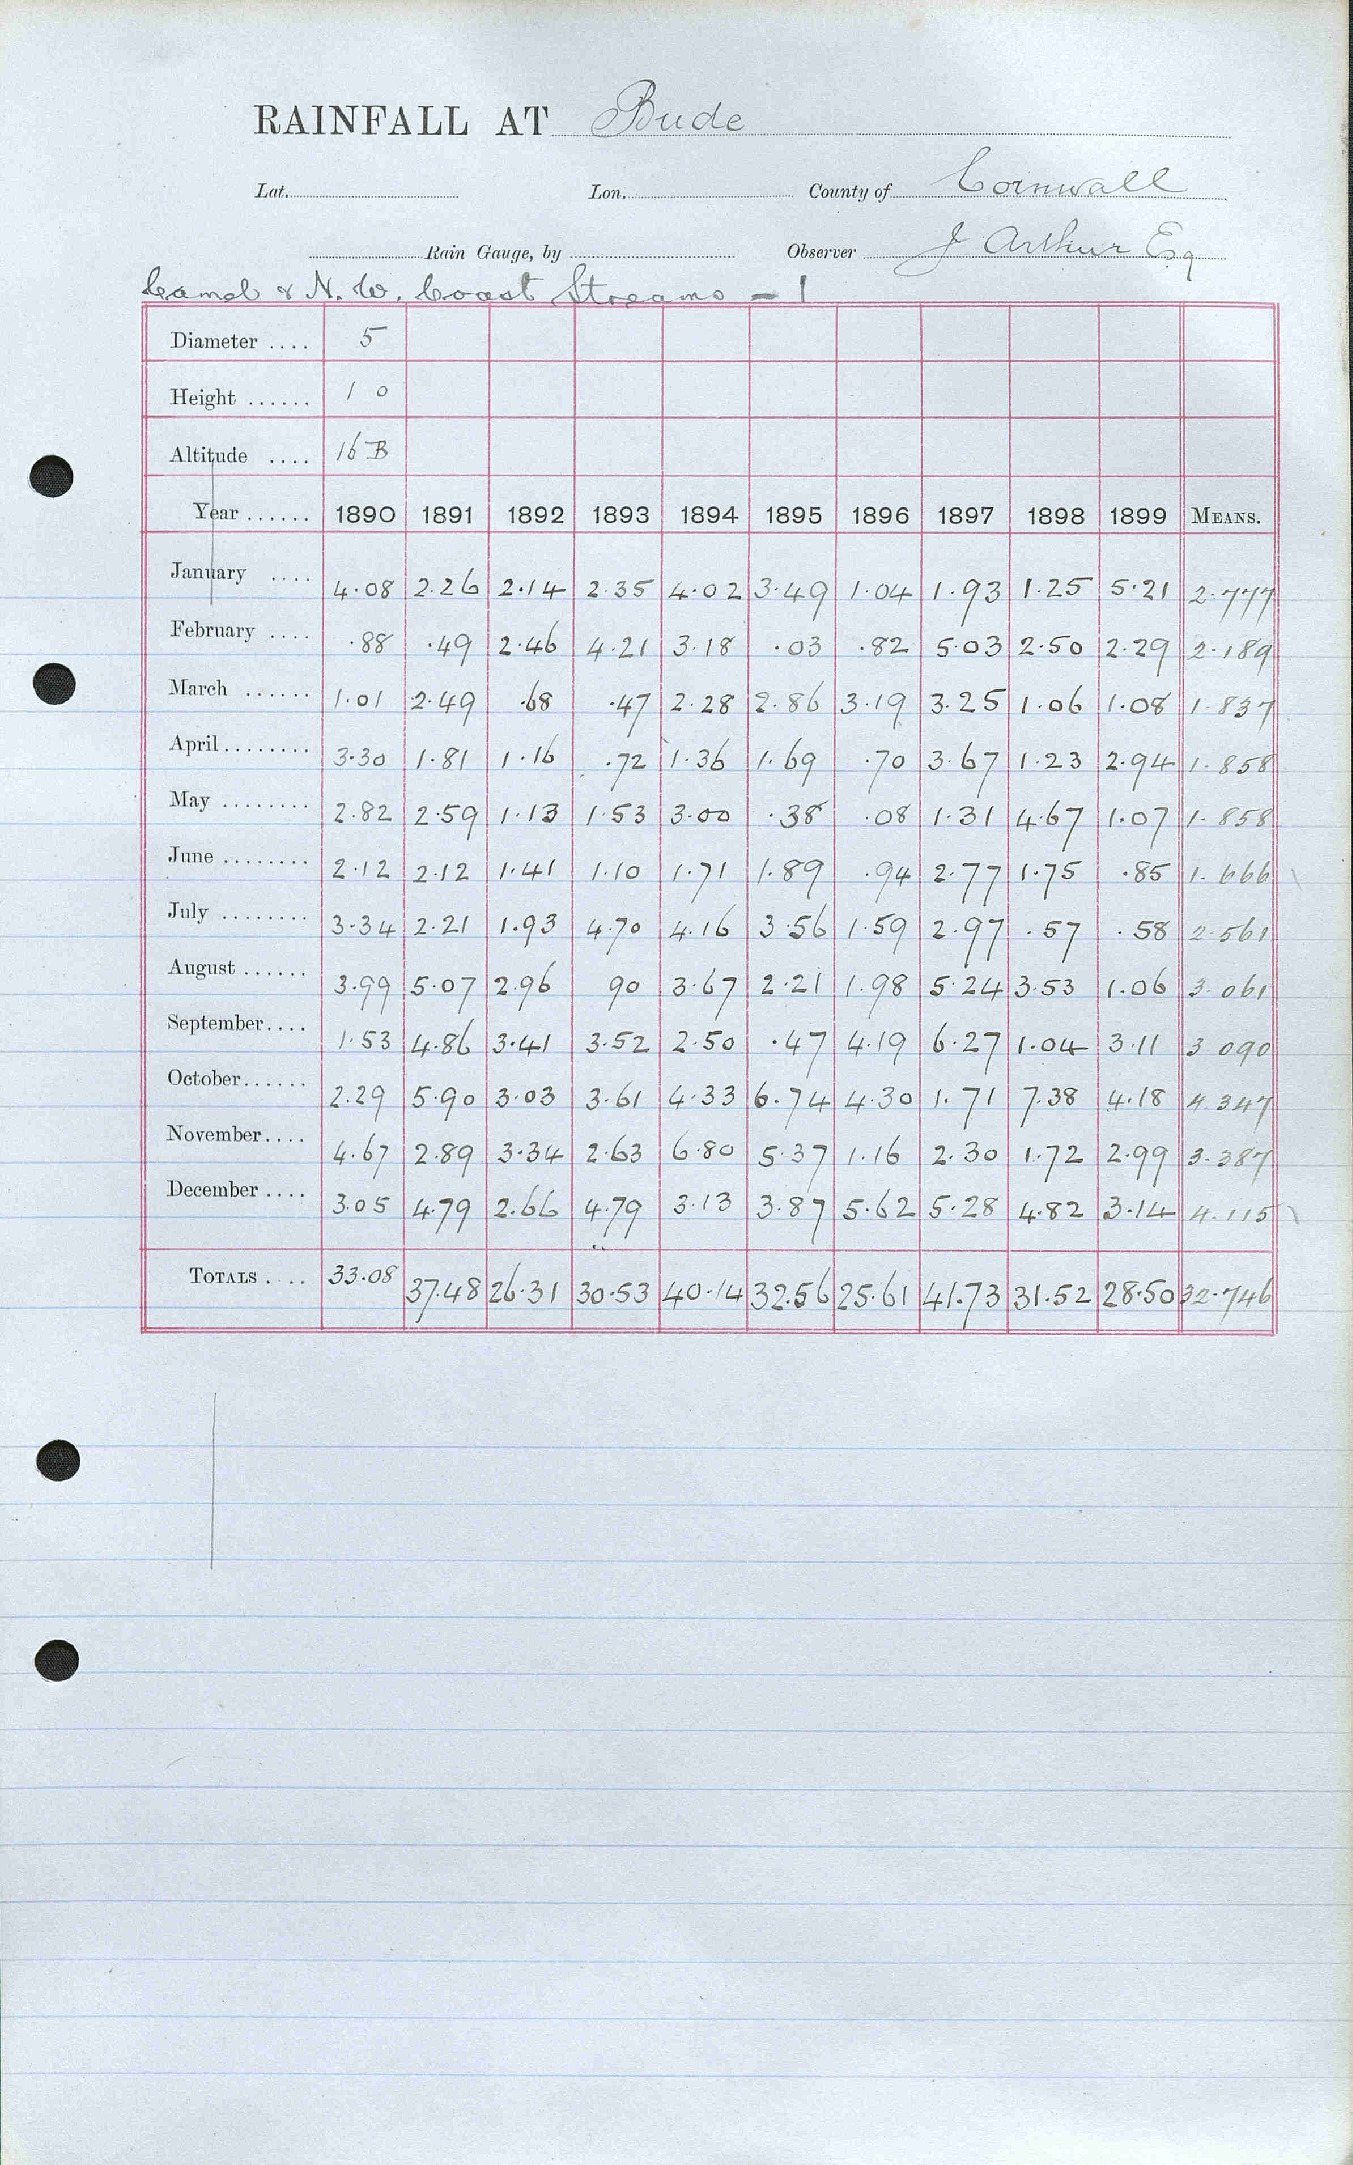 RAINFALL AT Bude
Lat. Lon. County of Cornwall
Rain Gauge, by Observer J Arthur Esq
Camel & N. W. Coast Streams - 1
Diameter .... 5
Height ...... 1 0
Altitude .... 16 B
Year ...... 1890 1891 1892 1893 1894 1895 1896 1897 1898 1899 MEANS.
January .... 4.08 2.26 2.14 2.35 4.02 3.49 1.04 1.93 1.25 5.21 2.777
February .... .88 .49 2.46 4.21 3.18 .03 .82 5.03 2.50 2.29 2.189
March ...... 1.01 2.49 .68 .47 2.28 2.86 3.19 3.25 1.06 1.08 1.837
April ........ 3.30 1.81 1.16 .72 1.36 1.69 .70 3.67 1.23 2.94 1.858
May ........ 2.82 2.59 1.13 1.53 3.00 .38 .08 1.31 4.67 1.07 1.858
June ........ 2.12 2.12 1.41 1.10 1.71 1.89 .94 2.77 1.75 .85 1.666
July ........ 3.34 2.21 1.93 4.70 4.16 3.56 1.59 2.97 .57 .58 2.561
August ...... 3.99 5.07 2.96 90 3.67 2.21 1.98 5.24 3.53 1.06 3.061
September.... 1.53 4.86 3.41 3.52 2.50 .47 4.19 6.27 1.04 3.11 3 090
October...... 2.29 5.90 3.03 3.61 4.33 6.74 4.30 1.71 7.38 4.18 4.347
November.... 4.67 2.89 3.34 2.63 6.80 5.37 1.16 2.30 1.72 2.99 3.387
December .... 3.05 4.79 2.66 4.79 3.13 3.87 5.62 5.28 4.82 3.14 4.115
TOTALS .... 33.08 37.48 26.31 30.53 40.14 32.56 25.61 41.73 31.52 28.50 32.746